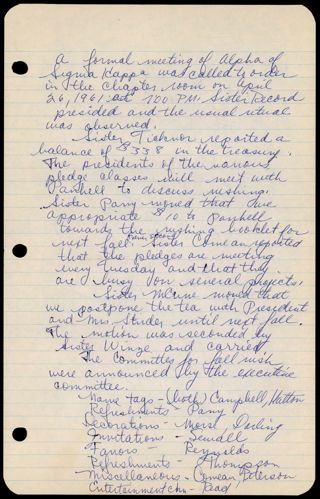 A formal meeting of Alpha of
Sigma Kappa was called to order
in the Chapter room on April
26, 1961 at 7:00 P.M. Sister Record
presided and the usual ritual
was observed.
Sister Tichenor reported a
balance of $338 in the treasury.
The presidents of the various
pledge classes will meet with
Panhell to discuss rushing.
Sister Parry moved that we
appropriate $10 to Panhell
towards the rushing booklet for
next fall. Sister Comeau reported
that the pledges are meeting
every Tuesday and that they
are busy on several projects.
Sister moved that
we postpone the tea with President
and Mrs Strider until next fall.
The motion was seconded by
Sister Winze and carried.
The Committees for fall rush
were announced by the executive
committee.
Name tags - (both) Campbell, Hatton
Refreshments - Parry
Decorations - Morse, Darling
Invitations - Sewall
Favors - Reynolds
Refreshments - Thompson
Miscellaneous - Comeau, Peterson
Entertainment chn - Read